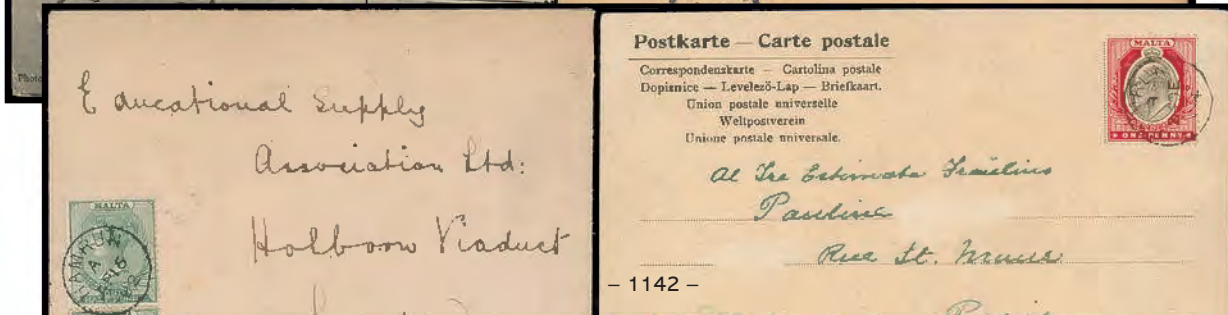 Photo
Educational Supply
Association Ltd:
Holborn Viaduct
MALTA
HAMRUN
A
Postkarte — Carte postale
Correspondenzkarte — Cartolina postale
Dopisnice — Levelező-Lap — Briefkaart.
Union postale universelle
Weltpostverein
Unione postale universale.
MALTA
ONE PENNY
Al Tre Estimata Fraülins
Pauline
Rue St.
– 1142 –